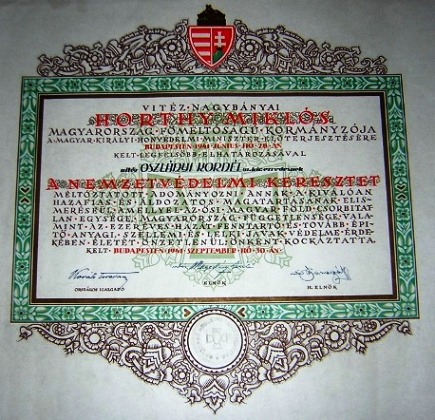 VITÉZ·NAGYBÁNYAI
HORTHY·MIKLÓS
MAGYARORSZÁG·FŐMÉLTÓSÁGÚ·KORMÁNYZÓJA
A·MAGYAR·KIRÁLYI·HONVÉDELMI·MINISZTER·ELŐTERJESZTÉSÉRE
BUDAPESTEN·1941·JÚNIUS·HÓ·28·ÁN
KELT·LEGFELSŐBB·ELHATÁROZÁSÁVAL
vitéz OSZLÁNYI KORNÉL
A·NEMZETVÉDELMI·KERESZTET
MÉLTÓZTATOTT·ADOMÁNYOZNI·ANNAK·A·NÁLÓAN
HAZAFIAS·ÉS·ÁLDOZATOS·MAGATARTÁSÁNAK·ELIS-
MERÉSÉÜL·AMELLYEL·AZ·ŐSI·MAGYAR·FÖLD·CSORBÍTAT-
LAN·EGYSÉGE,·MAGYARORSZÁG·FÜGGETLENSÉGE,·VALA-
MINT·AZ·EZERÉVES·HAZÁT·FENNTARTÓ·ÉS·TOVÁBB·ÉPÍ-
TŐ·ANYAGI,·SZELLEMI·ÉS·LELKI·JAVAK·VÉDELME·ÉRDE-
KÉBEN·ÉLETÉT·ÖNZETLENÜL·ÖNKÉNT·KOCKÁZTATTA.
KELT·BUDAPESTEN·1941·SZEPTEMBER·HÓ·30·ÁN·
ORSZÁGOS SZÁMADÓ
ELNÖK
H. ELNÖK